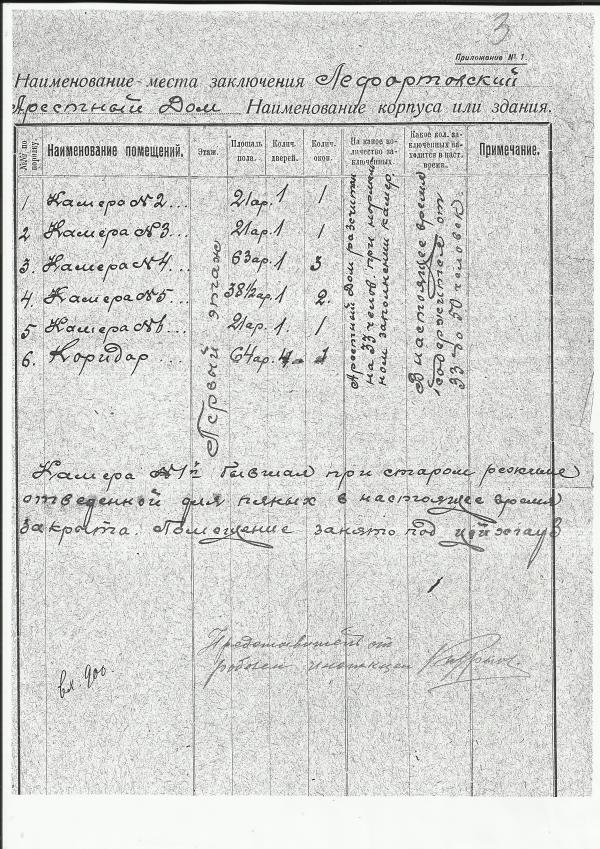 3
Приложение № 1
Наименование места заключения Лефортовский
Арестный Дом Наименование корпуса или здания.
№№ по порядку. Наименование помещений. Этаж. Площадь пола. Колич. дверей. Колич. окон. На какое количество заключенных Какое кол. заключенных находится в наст. время. Примечание.
1. Камера №2... 21 ар. 1 1
2 Камера №3... 21 ар. 1 1
3. Камера №4... 63 ар. 1 3
4. Камера №5... 38 1/2 ар. 1 2.
5 Камера №6... 21 ар. 1. 1
6. Коридар.... 64 ар. 4. 1
Первый этаж
Арестный Дом разсчитан
на 33 челов. при нормаль
ном заполнении камер.
В настоящее время
содержится от
33 до 50 человек.
Камера №1й бывшая при старом режиме
отведенной для пяных в настоящее время
Закрыта. Помещение занято под цейхгауз
Представитель от
рабочей инспекции
вх. 900